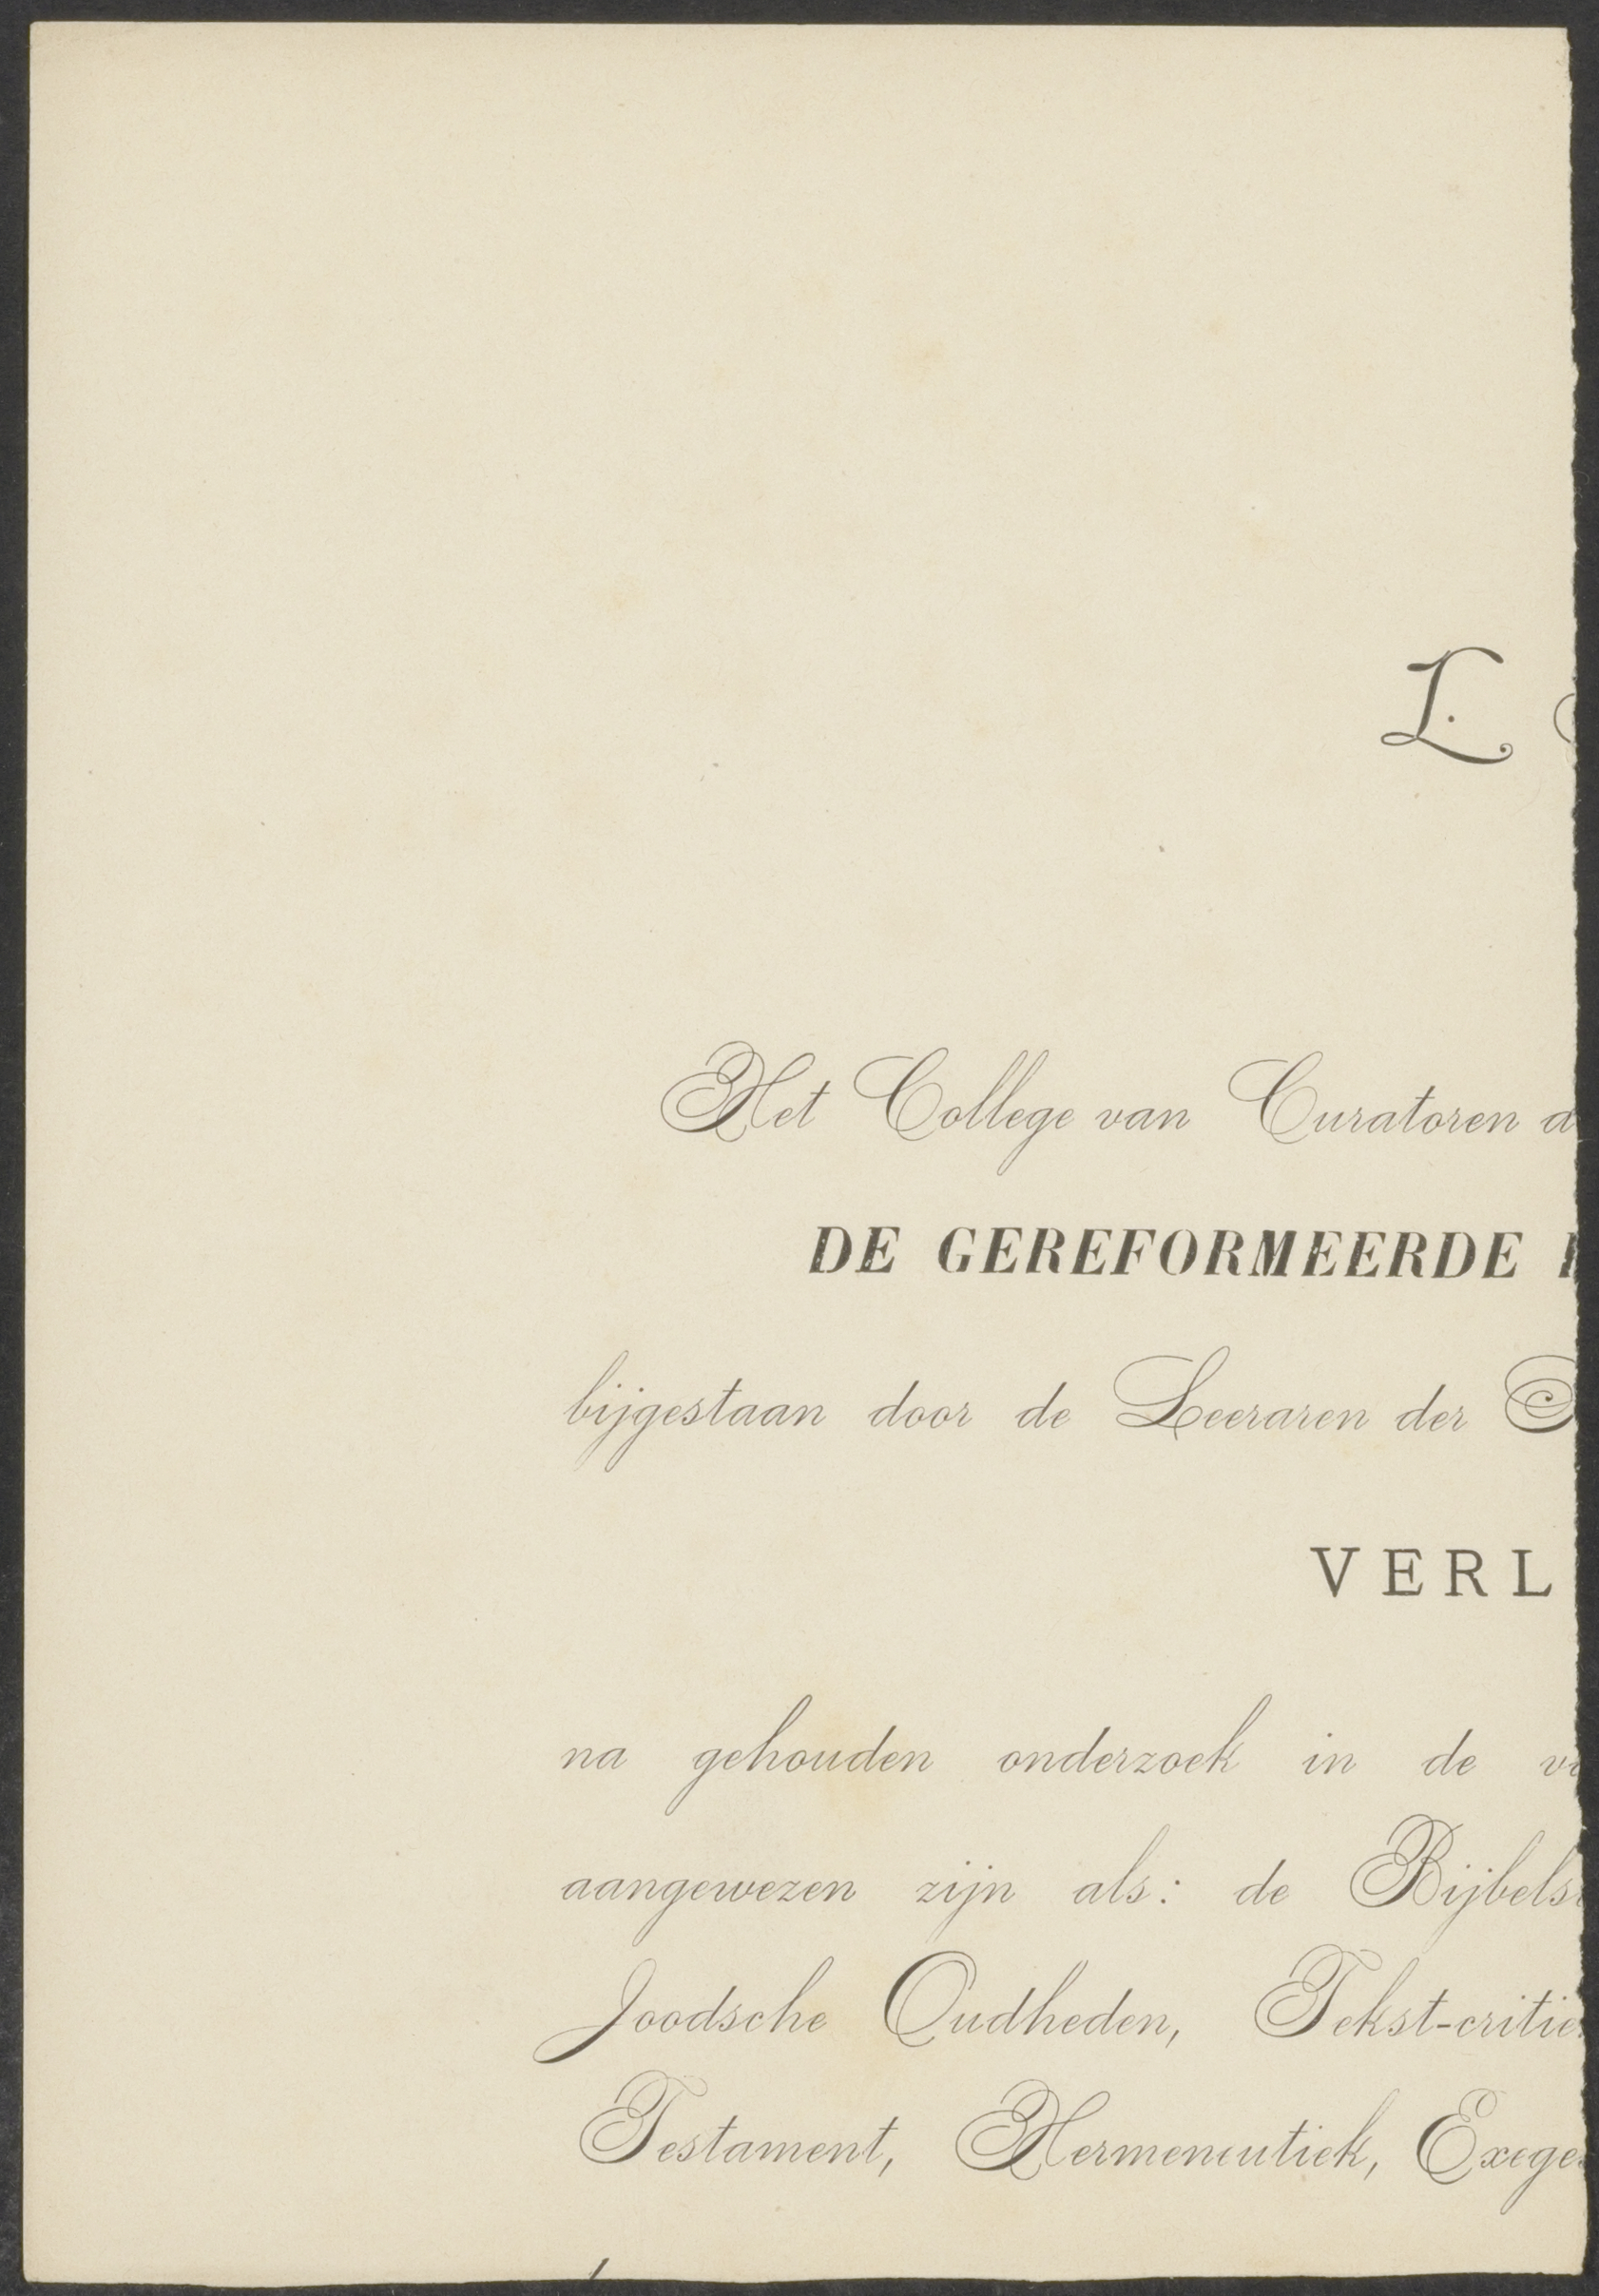 L.
Het College van Curatoren
DE GEREFORMEERDE
bijgestaan door de Leeraren der
VERL
na gehouden onderzoek in de
aangewezen zijn als: de Bijbels
Joodsche Oudheden, Tekst-critie
Testament, Hermeneutiek, Exege